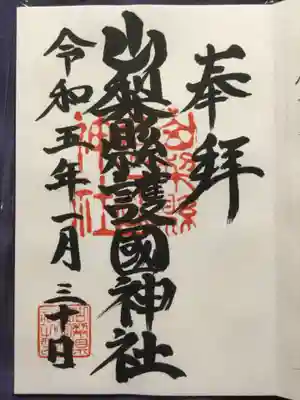 奉拝
山梨縣護國神社
令和五年一月三十日